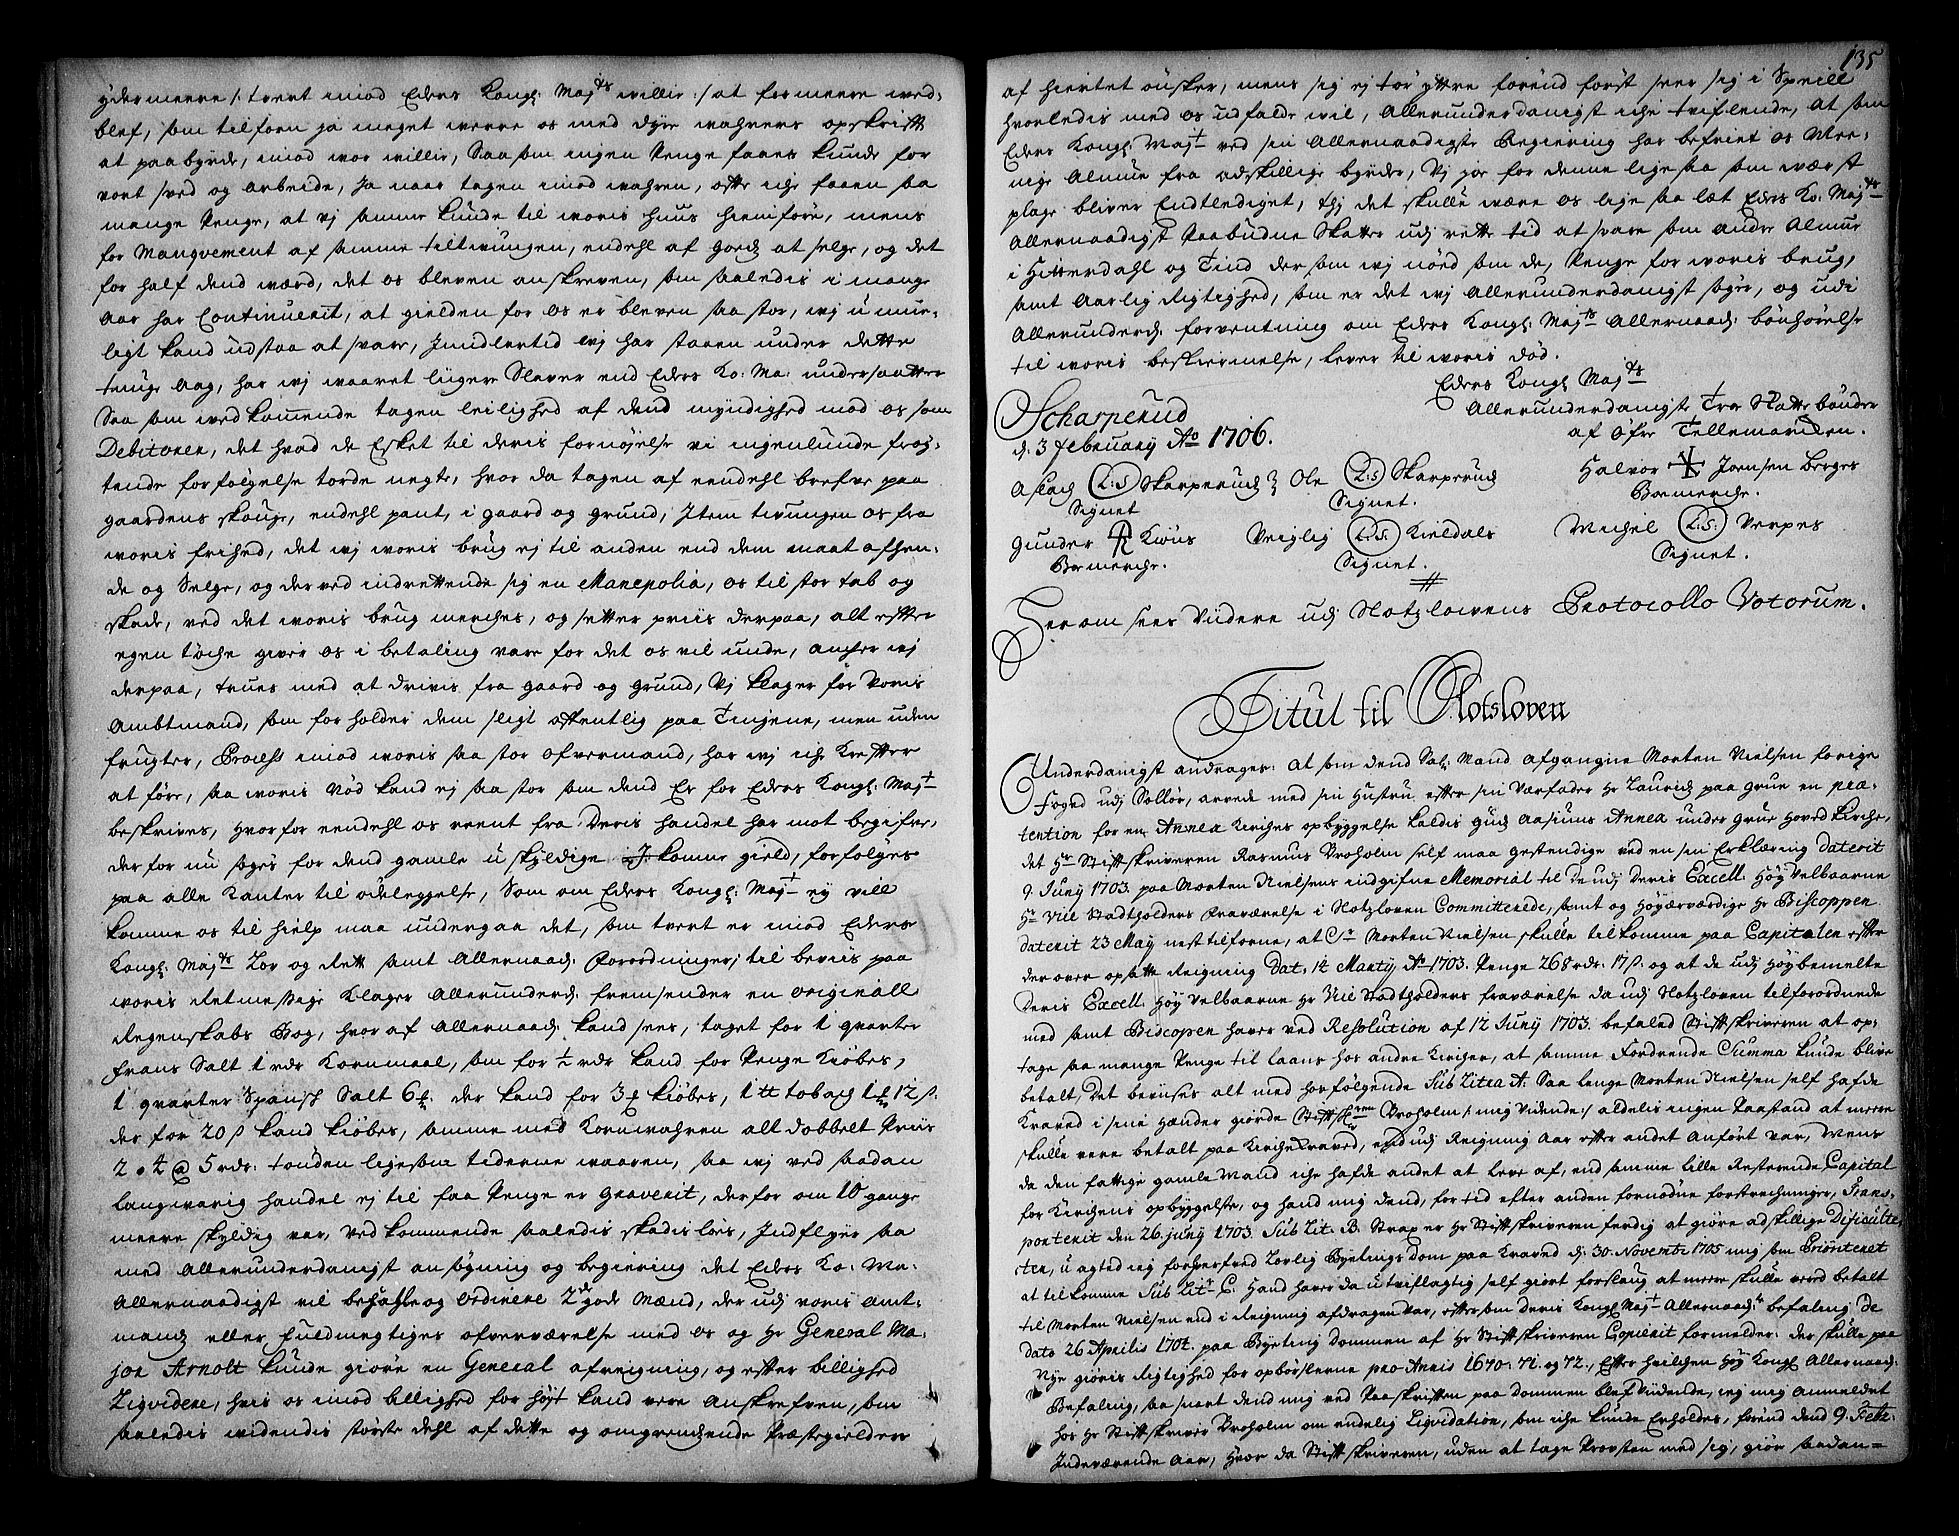 ydermeere /: tvert imod Eders Kongl: Majts willie :/ at formeere wed-
blef, som tilforn ja meget werre os med dyre wahrers opskrifft
at paabyrde, imod vor willie, Saasom ingen Penge faaes kunde for
vort sved og arbeide, Ja naar tagen imod wahren, offte iche faaen saa
mange Penge, at vj samme kunde til woris huus hiemføre, mens
for Manqvement af samme tiltwungen, endehl af godz at selge, og det
for half dend værd, det os bleven anskreven, som saaledis i mange
Aar har Continuerit, at gielden for os er bleven saa stor, wj umue-
ligt kand udstaa at svare, Imidlertid wj har staaen under dette
tunge Aag, har wj waaret liigere Slaver end Eders Ko: Ma: undersaatter
Saa som wedkommende tagen leilighed af dend myndighed mod os som
Debitorer, det hvad de Esket til deris fornøjelse vi ingenlunde frog-
tende forfølgelse torde negte, hvor da tagen af eendehl brefve paa
gaardens skouge, endehl pant, i gaard og grund, Item tvungen os fra
woris frihed, det wj woris brug ej til anden end dem maat afhen-
de og Selge, og derved indrettende sig en Manepolia, os til stor tab og
skade, ved det woris brug merches, og setter priis derpaa, alt effter
egen tøche giver os i betaling vare for det os vil unde, ancher wj
derpaa, trues med at drivis fra gaard og grund, Vj klager for Voris
Ambtmand, som forholder dem sligt offentlig paa Tingene, men uden
frugter, Process imod woris saa stor ofvermand, har wj iche Kreffter
at føre, saa woris Nød kand ej saa stor som dend Er for Eders Kongl: Majt
beskrives, hvorfor eendehl os reent fra Deris handel har mot begifve,
derfor nu søges for dend gamle uskyldige Ihkomne gield, forfølges
paa alle Kanter til ødeleggelse, Som om Eders Kongl: Majt ej vill
komme os til hielp maa undergaa det, som tvert er imod Eders
Kongl: Majts Lov og Rett samt Allernaad: Forordninger; til beviis paa
woris Retmessige Klager Allerunderd: fremsender en originall
Regenskabs Bog, hvoraf Allernaad: kand sees, taget for 1 qvarter
frans Salt 1 rdr Kornmaal, som for ½ rdr kand for Penge kiøbes,
1 qvarter Spansch Salt 6 ₰ der kand for 3 ₰ kiøbes, 1 tt tobach 1 ₰ 12 ß.
der for 20 ß kand kiøbes, samme med Kornwahren alt dobbelt Priis
2. 4 @ 5 rdr: tønden ligesom tiderne waaren, saa wj ved saadan
langwarig handel ej til faa Penge er Graverit, derfor om 10 gange
meere skyldig var, Vedkommende saaledis skadisløs, Indflyer saa
med Allerunderdanigst ansøgning og begiering det Eders Ko: Ma-
Allernaadigst vil behafve og Ordinere 2de gode Mænd, der udj voris Amt-
mands eller fuldmegtiges ofverværelse med os og Hr General Ma-
jor Arnolt kunde giøre en General afreigning, og effter billighed
Liqvidere, hvis os imod billighed for høyt kand vere Anskrefven, som
saaledis widendis største dehl af dette og omgrendsende Præstegielder
135
af hiertet ønsker, mens sig ej tør yttre førend først seer sig i Speill
hvorledis med os udfalde wil, Allerunderdanigst iche tviflende, at som
Eders Kongl: Majt ved sin Allernaadigste Regiering har befriet os Mee-
nige Almue fra adskillige byrder, Vj jo for denne lige saa som wærst
plage bliver Endtlediget, thj det skulle wære os lige saa læt Eders Ko: Majts
Allernaadigst Paabudne Skatter udj rette tid at svare som andre Almue
i Hitterdahl og Tind dersom wj nød som de, Penge for woris brug,
samt Aarlig Rigtighed, som er det wj Allerunderdanigst søger, og udi
Allerunderd: forventning om Eders Kongl: Majts Allernaad: bønhørelse
til woris beskiermelse, lever til woris død.
Eders Kongl Majts
Allerunderdanigste Troe Skattebønder
af Øfre Tellemarcken.
Scharperud
d: 3 February Ao 1706.
Aslach (L:S) Skarperud Ole (L:S) Skarperud Halvor Joensen Berges
Signet Signet. Boemerche.
Gunder R Kiøns Veiglej (L:S:) Kieldals Michel (L:S:) Verpes
Boemerche. Signet. Signet.
Herom sees Viidere udj Slotzlowens Protocollo Votorum.
Titul til Slotsloven
Underdanigst andrages: At som dend Sal: Mand afgangne Morten Nielsen forige
Foged udj Soløer, arvede med sin Hustru efter sin Værfader Hr Lauridz paa Grue en Præ-
tention for en Annex Kirches opbyggelse kaldis Gud Aasiums Annex under Grue Hoved Kirche,
det Hr Stifftskriveren Rasmus Broholm self maa gestendige ved en sin Erklæring daterit
9 Juny 1703. paa Morten Nielsens indgifne Memorial til De udj Deris Excell. Høy Velbaarne
Hr Vice Stadtholders fraværelse i Slotzloven Committerede, samt og Høyærværdige Hr Biscoppen
daterit 23 May nest tilforne, at Sr Morten Nielsen skulle tilkomme paa Capitalen effter
derover opsatte Reigning Dat: 14 Marty Ao 1703. Penge 268 rdr. 17 ß. og at de udj Høybemelte
Deris Excell. Høy Velbaarne Hr Vice Stadtholders fraværelse da udj Slotzloven tilforordnede
med samt Biscopen haver ved Resolution af 12 Juny 1703. befaled Stifftskriveren at op-
tage saa mange Penge til laans hos andre Kircher, at samme Fordrende Summa kunde blive
betalt, Det beviises alt med herfølgende Sub Litra A. Saa lenge Morten Nielsen self hafde
Kraved i sine Hænder giorde Stifftskrveren Broholm /: mig Vidende :/ aldelis ingen Paastand at meere
skulle vere betalt paa Kirche Kraved, end udj Reigning Aar efter andet Anført var, Mens
da den fattige gamle Mand iche hafde andet at leve af, end samme lille Resterende Capital
for Kirchens opbyggelse, og hand mig dend, for tid efter anden fornødne forstrechninger, Trans-
porterit den 26. Juny 1703. Sub Lit: B. Strax er Hr Stifftskriveren ferdig at giøre adskillige Dificulte-
ter, uagted ieg forhverfved Lovlig Byetings Dom paa Kraved d: 30. Novembr 1705 mig som Prioriteret
at tilkomme Sub Litr C. Hand haver da utviflagtig self giort forslaug at meere skulle vered betalt
til Morten Nielsen end i Reigning afdragen var, eftersom Deris Kongl Majt Allernaad:te befaling De
dato 26 Aprilis 1704. paa Byeting Dommen af Hr Stifftskriveren Copierit formelder: der skulle paa
Nye giøris Rigtighed for opbørslerne pro Annis 1670: 71. og 72., Efter hvilchen Høy Kongl Allernaad:
Befaling, saa snart dend mig ved Paaskriften paa Dommen blef Viidende, ieg mig anmeldet
hos Hr Stifftskriver Broholm om endelig Liqvidation, som iche kunde Erholdes, førend dend 9. Febr:
Indeværende Aar, Hvor da Stifftskriveren, uden at tage Provsten med sig, giør saadan=